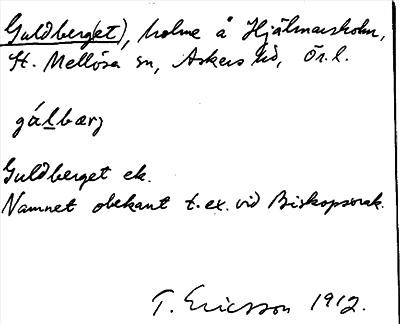 Guldberg(et), holme å Hjälmarsholm,
St. Mellösa sn, Askers hd, Ör. l.
gálbærj
Guldberget ek.
Namnet obekant t. ex. vid Biskopsvrak.
T. Ericsson 1912.